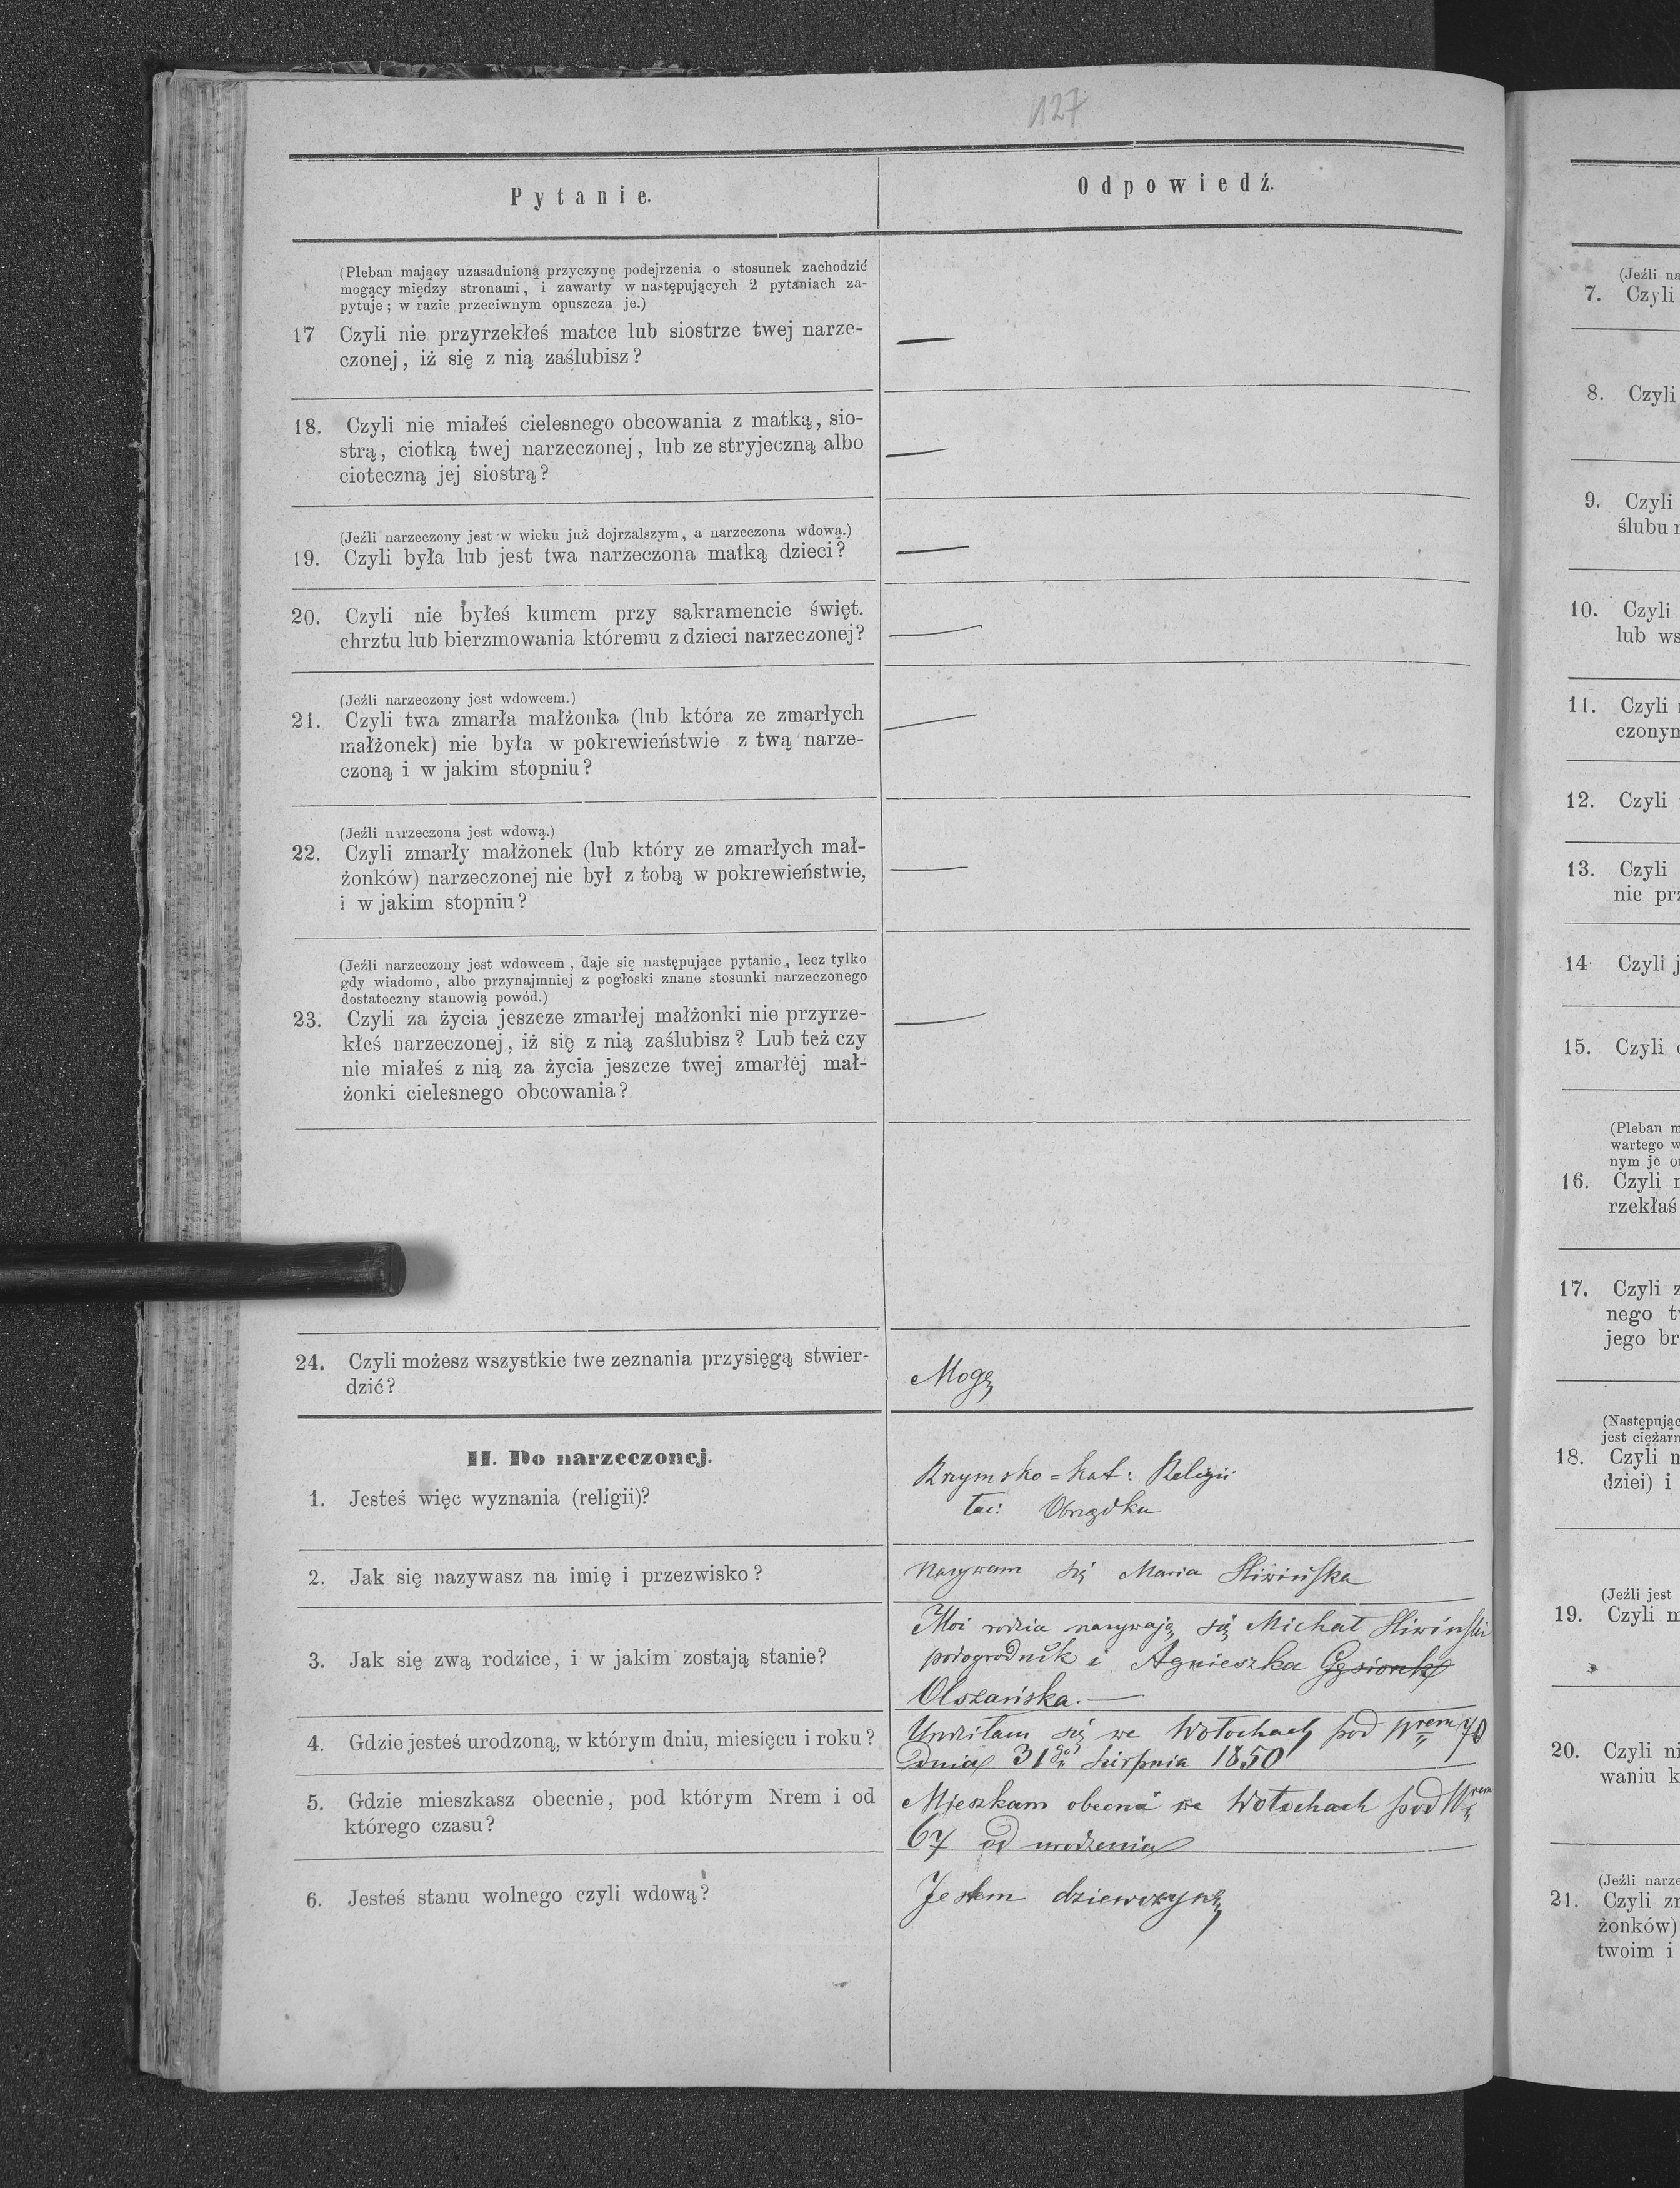 127
Pytanie.
Odpowiedź.
(Pleban mający uzasadnioną przyczynę podejrzenia o stosunek zachodzić
mogący między stronami, i zawarty w następujących 2 pytaniach za-
pytuje; w razie przeciwnym opuszcza je.)
17 Czyli nie przyrzekłeś matce lub siostrze twej narze-
czonej, iż się z nią zaślubisz?
—
18. Czyli nie miałeś cielesnego obcowania z matką, sio-
strą, ciotką twej narzeczonej, lub ze stryjeczną albo
cioteczną jej siostrą?
—
(Jeźli narzeczony jest w wieku już dojrzalszym, a narzeczona wdową.)
19. Czyli była lub jest twa narzeczona matką dzieci?
—
20. Czyli nie byłeś kumem przy sakramencie święt.
chrztu lub bierzmowania któremu z dzieci narzeczonej?
—
(Jeźli narzeczony jest wdowcem.)
21. Czyli twa zmarła małżonka (lub która ze zmarłych
małżonek) nie była w pokrewieństwie z twą narze-
czoną i w jakim stopniu?
—
(Jeźli narzeczona jest wdową.)
22. Czyli zmarły małżonek (lub który ze zmarłych mał-
żonków) narzeczonej nie był z tobą w pokrewieństwie,
i w jakim stopniu?
—
(Jeźli narzeczony jest wdowcem, daje się następujące pytanie, lecz tylko
gdy wiadomo, albo przynajmniej z pogłoski znane stosunki narzeczonego
dostateczny stanowią powód.)
23. Czyli za życia jeszcze zmarłej małżonki nie przyrze-
kłeś narzeczonej, iż się z nią zaślubisz? Lub też czy
nie miałeś z nią za życia jeszcze twej zmarłej mał-
żonki cielesnego obcowania?
—
24. Czyli możesz wszystkie twe zeznania przysięgą stwier-
dzić?
Mogę
II. Do narzeczonej.
1. Jesteś więc wyznania (religii)?
Rzymsko=kat: Religii
łac: Obrządku
2. Jak się nazywasz na imię i przezwisko?
Nazywam się Maria Śliwińska
3. Jak się zwą rodzice, i w jakim zostają stanie?
Moi rodzice nazywają się Michał Śliwiński
pozogrodnik i Agnieszka
Olszańska. —
4. Gdzie jesteś urodzoną, w którym dniu, miesięcu i roku?
Urodziłam się we Wołochach pod Nrem 70
dnia 31go sierpnia 1850
5. Gdzie mieszkasz obecnie, pod którym Nrem i od
którego czasu?
Mieszkam obecnie we Wołochach pod Nrem
67 od urodzenia
6. Jesteś stanu wolnego czyli wdową?
Jestem dziewczyną
(Jeźli na
7. Czyli
8. Czyli
9. Czyli
ślubu
10. Czyli
lub ws
11. Czyli
czonym
12. Czyli
13. Czyli
nie prz
14. Czyli j
15. Czyli
(Pleban m
wartego w
nym je o
16. Czyli
rzekłaś
17. Czyli z
nego t
jego br
(Następując
jest ciężarn
18. Czyli n
dziei) i
(Jeźli jest
19. Czyli m
20. Czyli ni
waniu k
(Jeźli narze
21. Czyli zm
żonków)
twoim i